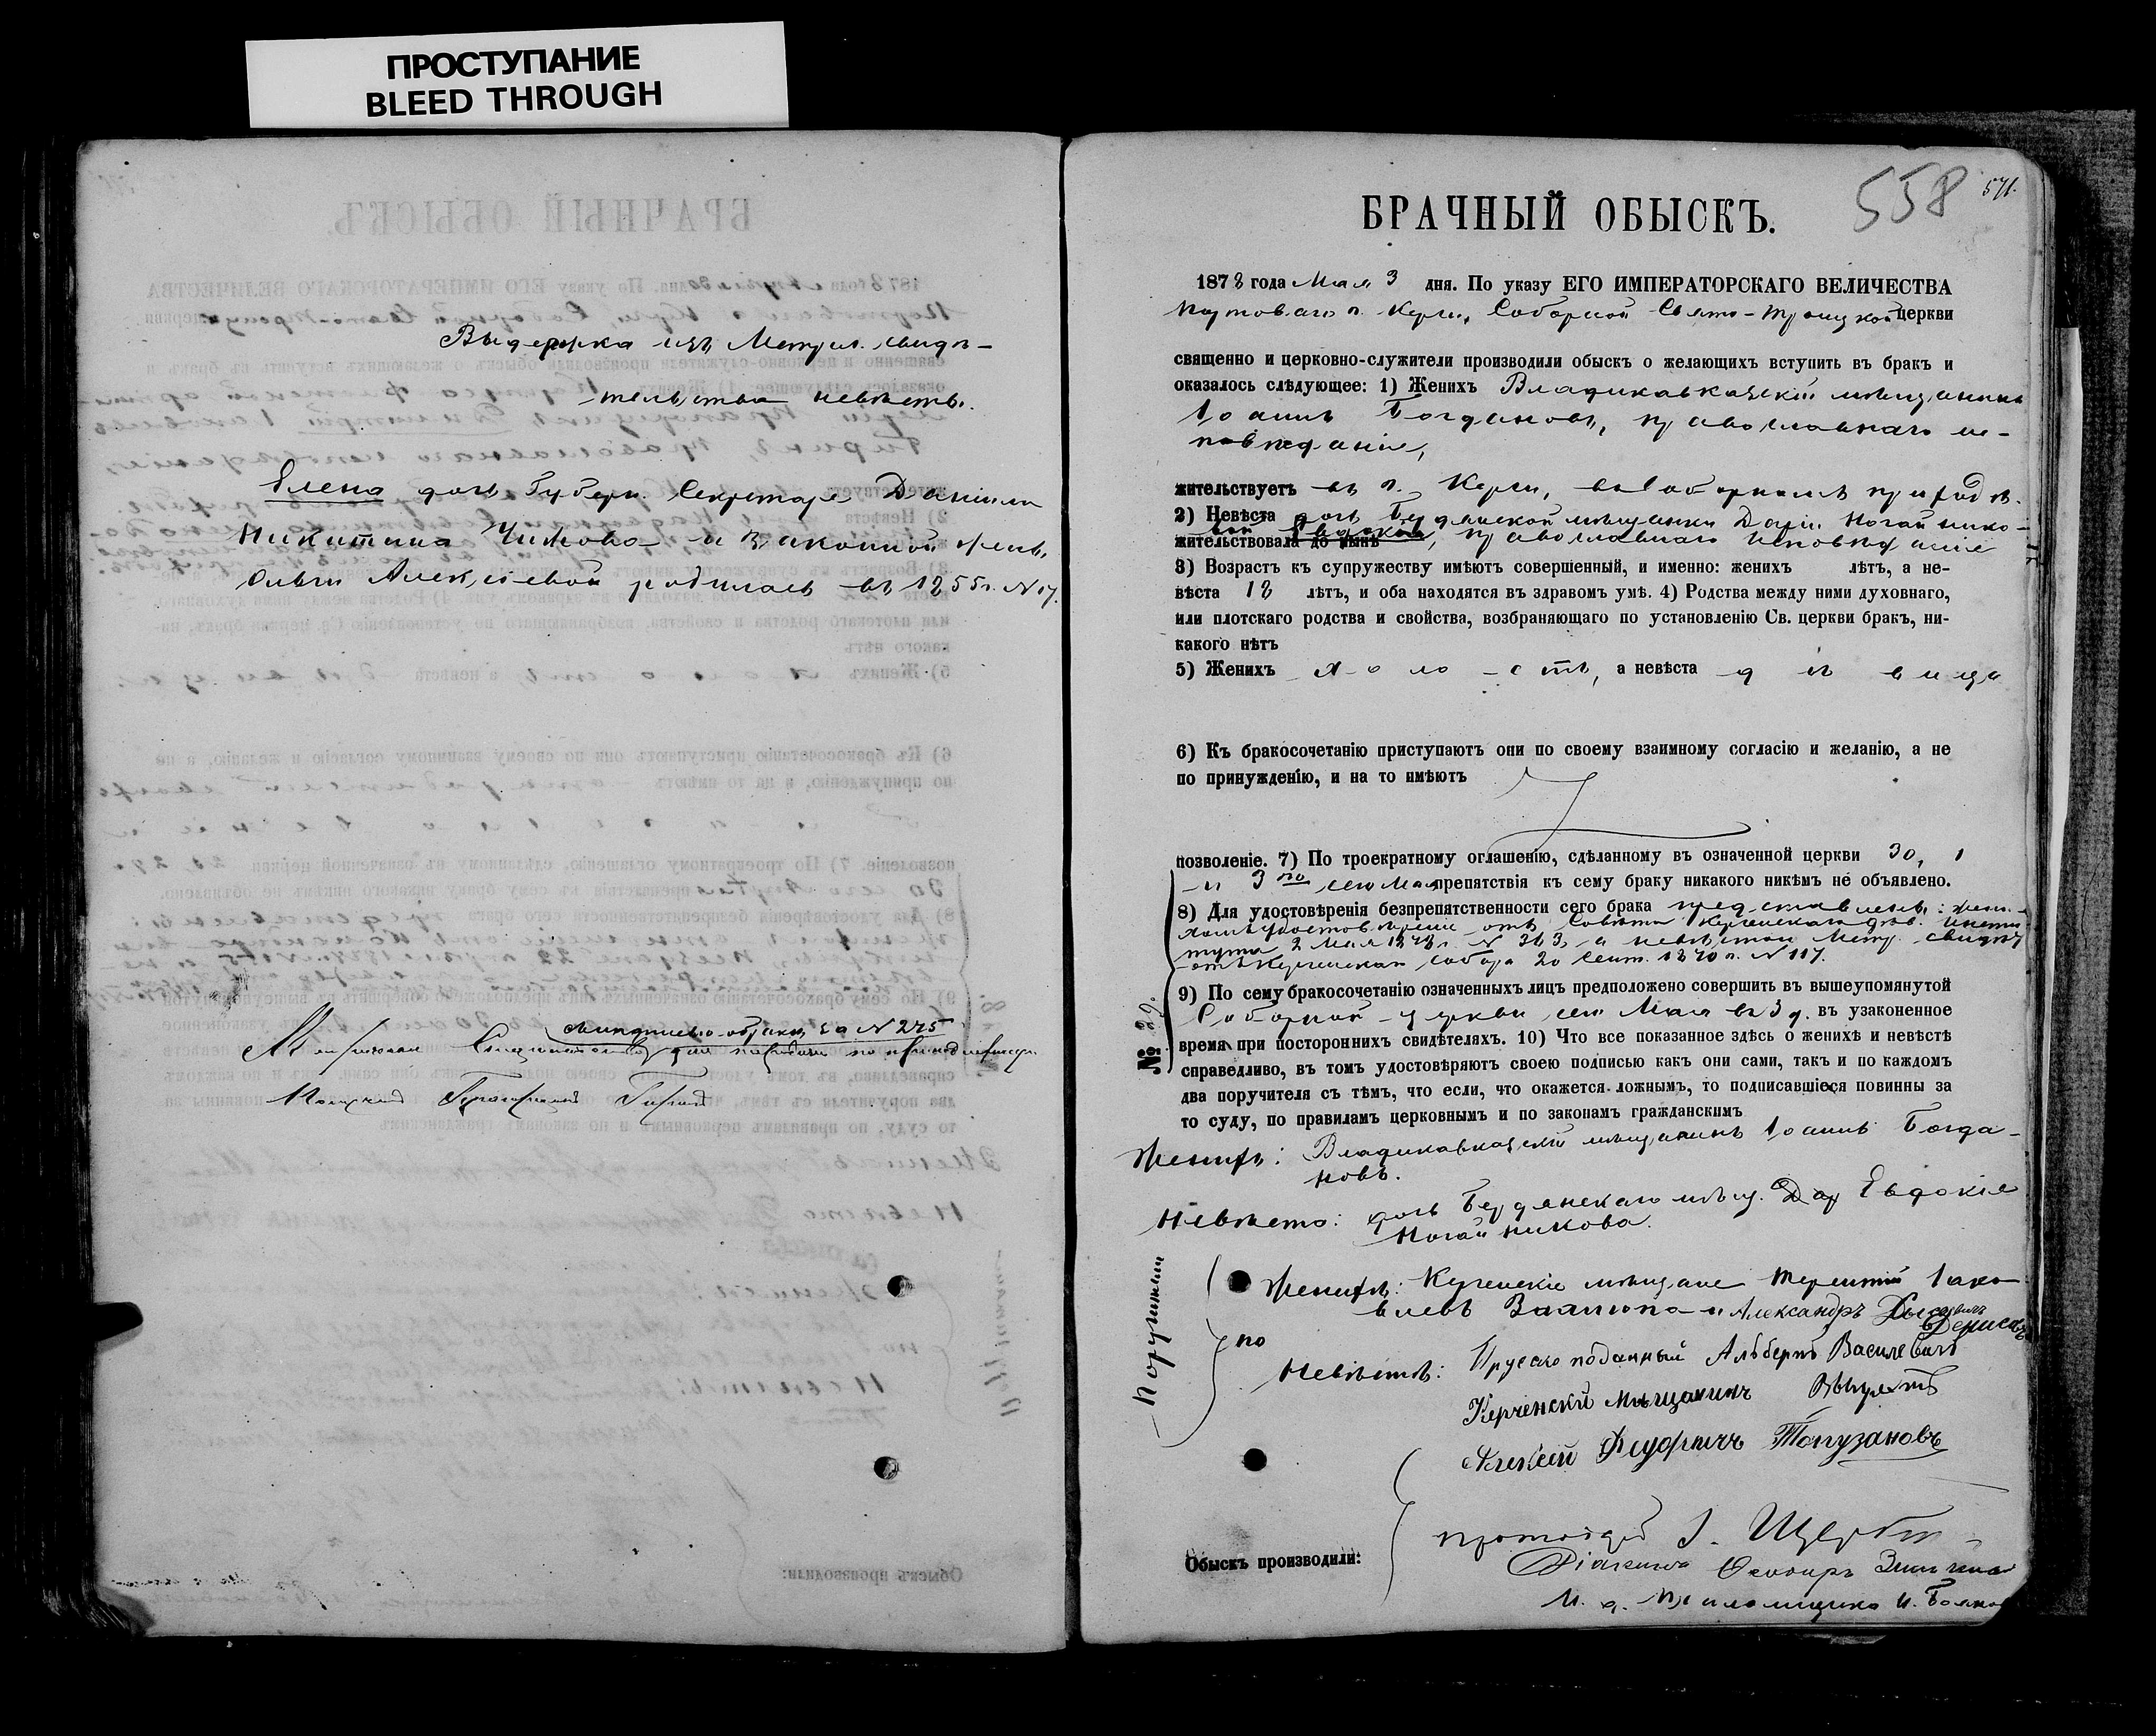 ПРОСТУПАНИЕ
BLEED THROUGH
Выдержка изъ Метрич. свидѣ-
тельства невѣсты.
Елена дочь Губерн. Секретаря Даніила
Никитина Чижова и законной жены
Ольги Алексѣевой родилась въ 1855 г. N 17.
N 275
558
571.
БРАЧНЫЙ ОБЫСКЪ.
1878 года Мая 3 дня. По указу ЕГО ИМПЕРАТОРСКАГО ВЕЛИЧЕСТВА
Портоваго г. Керчи, Соборной Свято-Троицкой церкви
священно и церковно-служители производили обыскъ о желающихъ вступить въ бракъ и
оказалось слѣдующее: 1) Женихъ Владикавказскій мѣщанинъ
Іоаннъ Богдановъ, православнаго ис-
повѣданія,
жительствуетъ въ г. Керчи, въ Соборномъ приходѣ.
2) Невѣста дочь Бердянской мѣщанки Дарьи Ногайнико-
вой Евдокія, православнаго исповѣданія
жительствовала до нынѣ
3) Возрастъ къ супружеству имѣютъ совершенный, и именно: женихъ лѣтъ, а не-
вѣста 18 лѣтъ, и оба находятся въ здравомъ умѣ. 4) Родства между ними духовнаго,
или плотскаго родства и свойства, возбраняющаго по установленію Св. церкви бракъ, ни-
какого нѣтъ
5) Женихъ холостъ, а невѣста дѣвица
6) Къ бракосочетанію приступаютъ они по своему взаимному согласію и желанію, а не
по принужденію, и на то имѣютъ
позволеніе. 7) По троекратному оглашенію, сдѣланному въ означенной церкви 30, 1
и 3го сего Мая препятствія къ сему браку никакого никѣмъ не объявлено.
8) Для удостовѣренія безпрепятственности сего брака представлены: жени-
хомъ удостовѣреніе отъ Совѣта Керченскаго дѣв. Инсти
тута 2 Мая 1878 г. N 313, а невѣстою Метр. свидѣт
отъ Керченскаго собора 20 Сент. 1870 г. N 117.
№ 39.
9) По сему бракосочетанію означенныхъ лицъ предположено совершить въ вышеупомянутой
Соборной церкви, сего Мая въ 3 д. въ узаконенное
время при постороннихъ свидѣтеляхъ. 10) Что все показанное здѣсь о женихѣ и невѣстѣ
справедливо, въ томъ удостовѣряютъ своею подписью какъ они сами, такъ и по каждомъ
два поручителя съ тѣмъ, что если, что окажется ложнымъ, то подписавшіеся повинны за
то суду, по правиламъ церковнымъ и по законамъ гражданскимъ
Женихъ: Владикавказскій мѣщанинъ Іоаннъ Богда-
новъ.
Невѣста: дочь Бердянскаго мѣщ. Дар Евдокія
Ногайникова.
Поручители
по
Женихѣ: Керченскіе мѣщане Терентій Іако
влевъ и Александръ
Денисовъ
Невѣстѣ: Прускоподанный Альбертъ Василевичъ
Керченскій Мѣщанинъ
Алексей Федоричъ Топузановъ
Обыскъ производили:
протоіерей І. Щерб
Діаконъ
И. д. Псаломщика И.